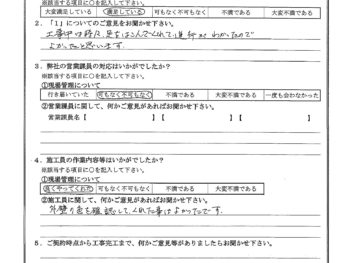 ※該当する項目に○を記入して下さい。
大変満足している 満足している 可もなく不可もなく 不満である 大変不満である
2．「1」についてのご意見をお聞かせ下さい。
工事中は時々、足をはこんでくれて進行が わかったので
よかったと思います。
3．弊社の営業課員の対応はいかがでしたか？
※該当する項目に○を記入して下さい。
①現場管理について
行き届いていた 可もなく不可もなく 不満である 大変不満である 一度も会わなかった
②営業課員に関して、何かご意見があればお聞かせ下さい。
営業課員名【 】【 】【 】
4．施工員の作業内容等はいかがでしたか？
※該当する項目に○を記入して下さい。
①現場管理について
良くやってくれた 可もなく不可もなく 不満である 大変不満である
②施工員に関して、何かご意見があればお聞かせ下さい。
外壁の色を確認して、くれた事はよかったです。
5．ご契約時点から工事完工まで、何かご意見等がありましたらお聞かせ下さい。